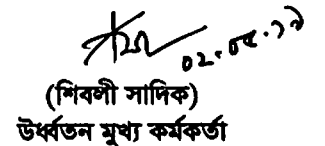 ০২.০৫.১৭
(শিবলী সাদিক)
উর্ধ্বতন মুখ্য কর্মকর্তা